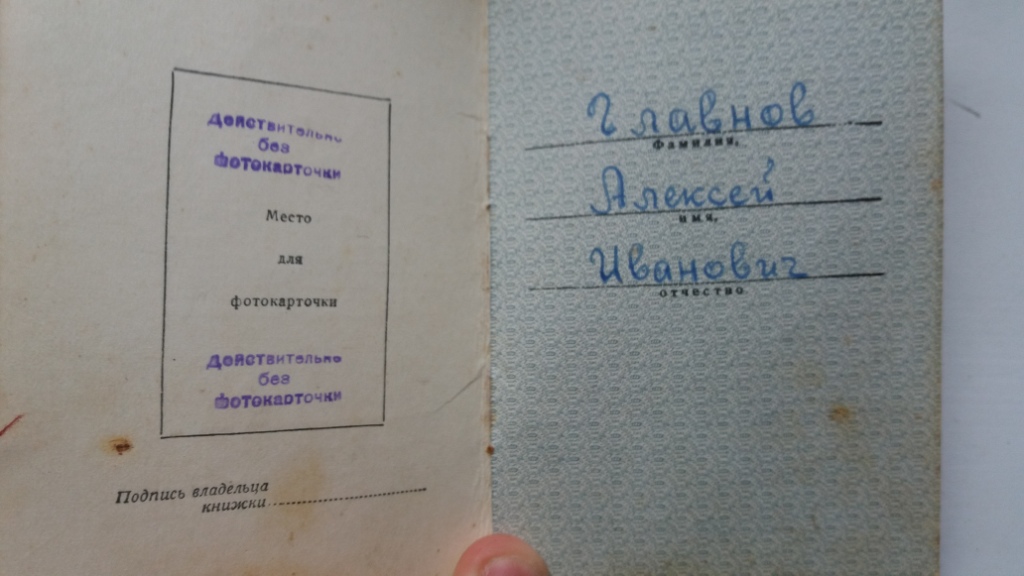 Действительно
без
фотокарточки
Место
для
фотокарточки
Действительно
без
фотокарточки
Подпись владельца
книжки
Главнов
Фамилия,
Алексей
имя,
Иванович
отчество